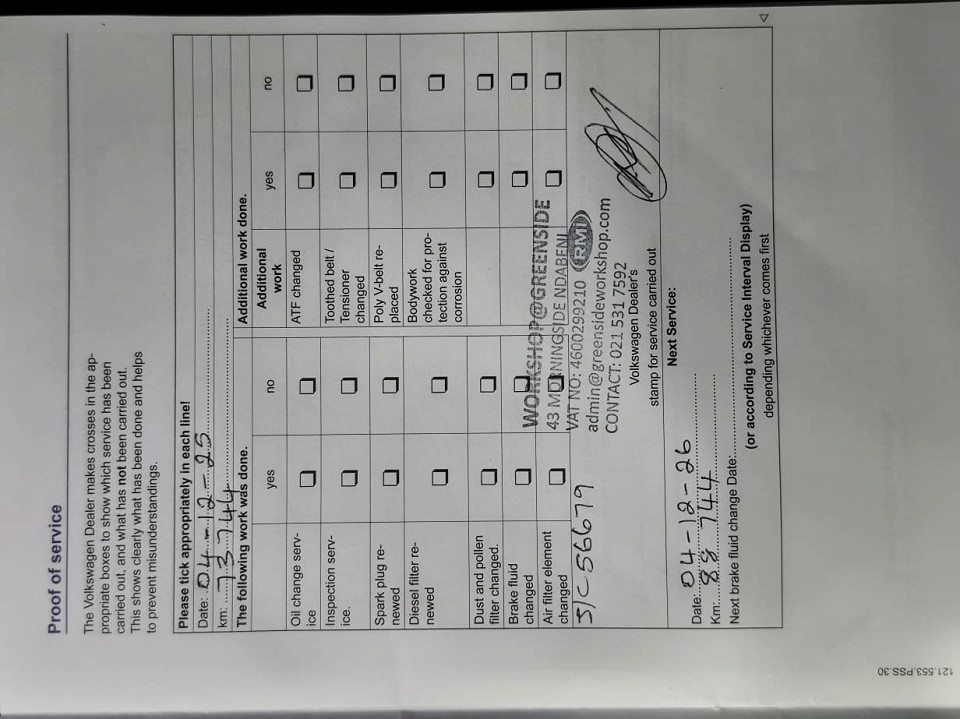 Proof of service
The Volkswagen Dealer makes crosses in the ap-
propriate boxes to show which service has been
carried out, and what has not been carried out.
This shows clearly what has been done and helps
to prevent misunderstandings.
Please tick appropriately in each line!
Date: 04-12-25
km: 73 744
The following work was done.
Additional work done.
yes no Additional work yes no
Oil change serv-
ice
ATF changed
Inspection serv-
ice.
Toothed belt /
Tensioner
changed
Spark plug re-
newed
Poly V-belt re-
placed
Diesel filter re-
newed
Bodywork
checked for pro-
tection against
corrosion
Dust and pollen
filter changed.
Brake fluid
changed
Air filter element
changed
J/C 56679
WORKSHOP@GREENSIDE
43 MORNINGSIDE NDABENI
VAT NO: 4600299210 RMI
admin@greensideworkshop.com
CONTACT: 021 531 7592
Volkswagen Dealer's
stamp for service carried out
Next Service:
Date: 04-12-26
Km: 88 744
Next brake fluid change Date:
(or according to Service Interval Display)
depending whichever comes first
121.553.PSS.30